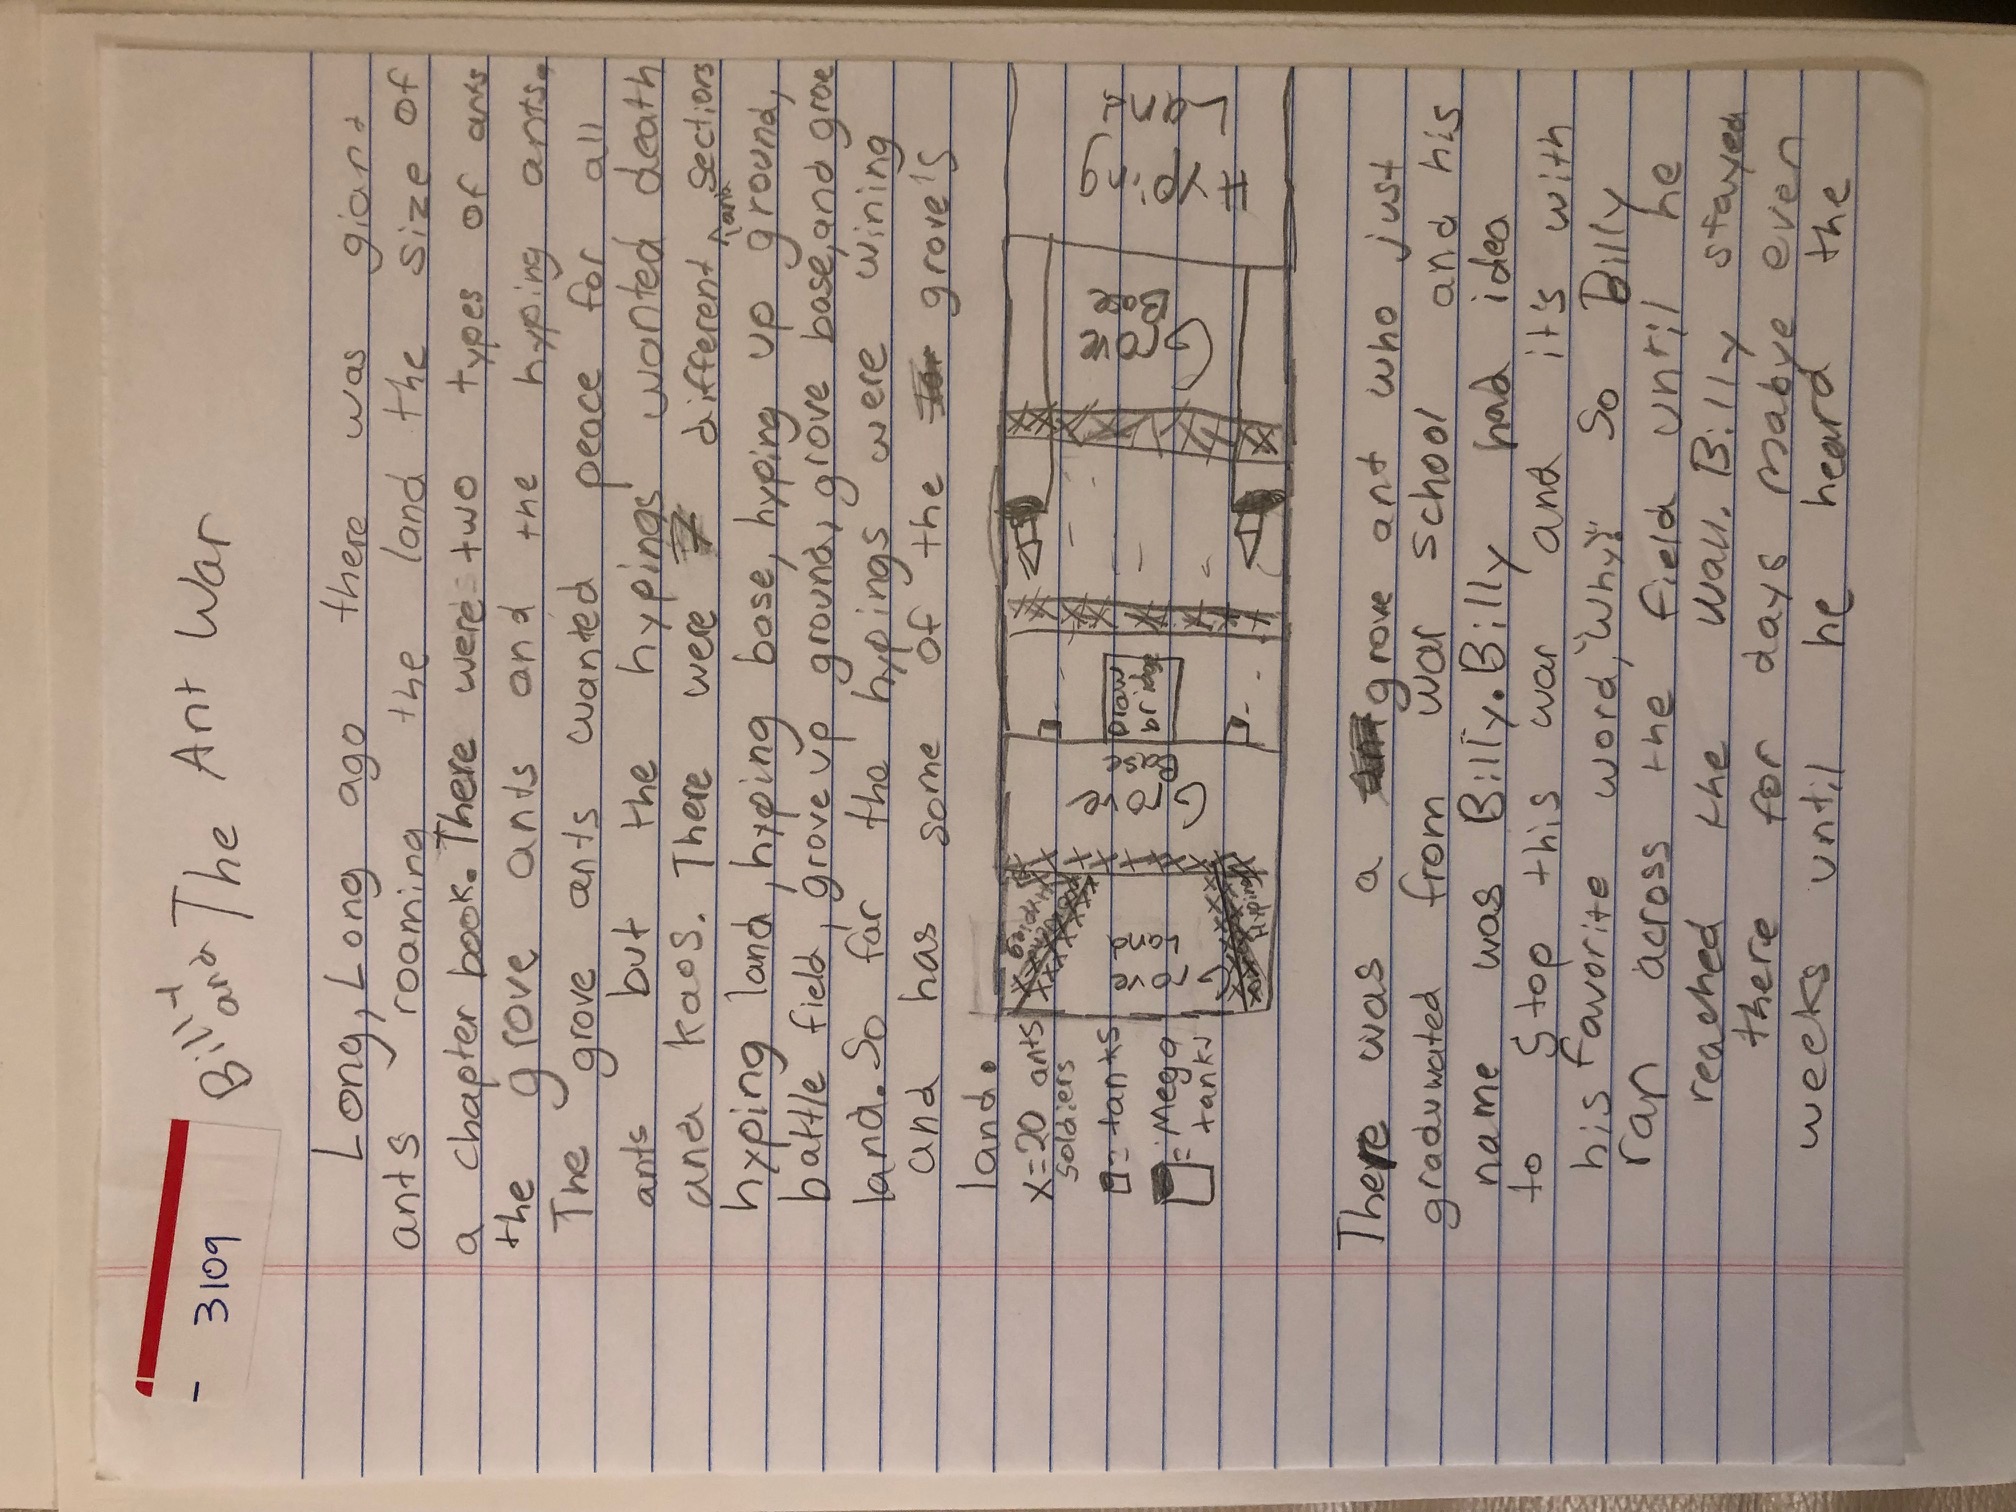 - 3109
Billy and The Ant War
Long, Long ago there was giant
ants roaming the land the size of
a chapter book. There were two types of ants
the grove ants and the hyping ants.
The grove ants wanted peace for all
ants but the hypings wanted death
and kaos. There were 7 different land sections
hyping land, hyping base, hyping up ground,
battle field, grove up ground, grove base, and groe
land. So far the hypings were wining
and has some of the grove's
land.
x=20 ants
soldiers
= tanks
= Mega
tanks
Hyping
Grove
Land
Hyping
Grove
Base
Draw
bridge
Grove
Base
Hyping
Land
There was a grove ant who just
graduwated from war school and his
name was Billy. Billy had idea
to stop this war and it's with
his favorite word, "Why?" So Billy
ran across the field until he
reached the wall. Billy stayed
there for days mabye even
weeks until he heard the